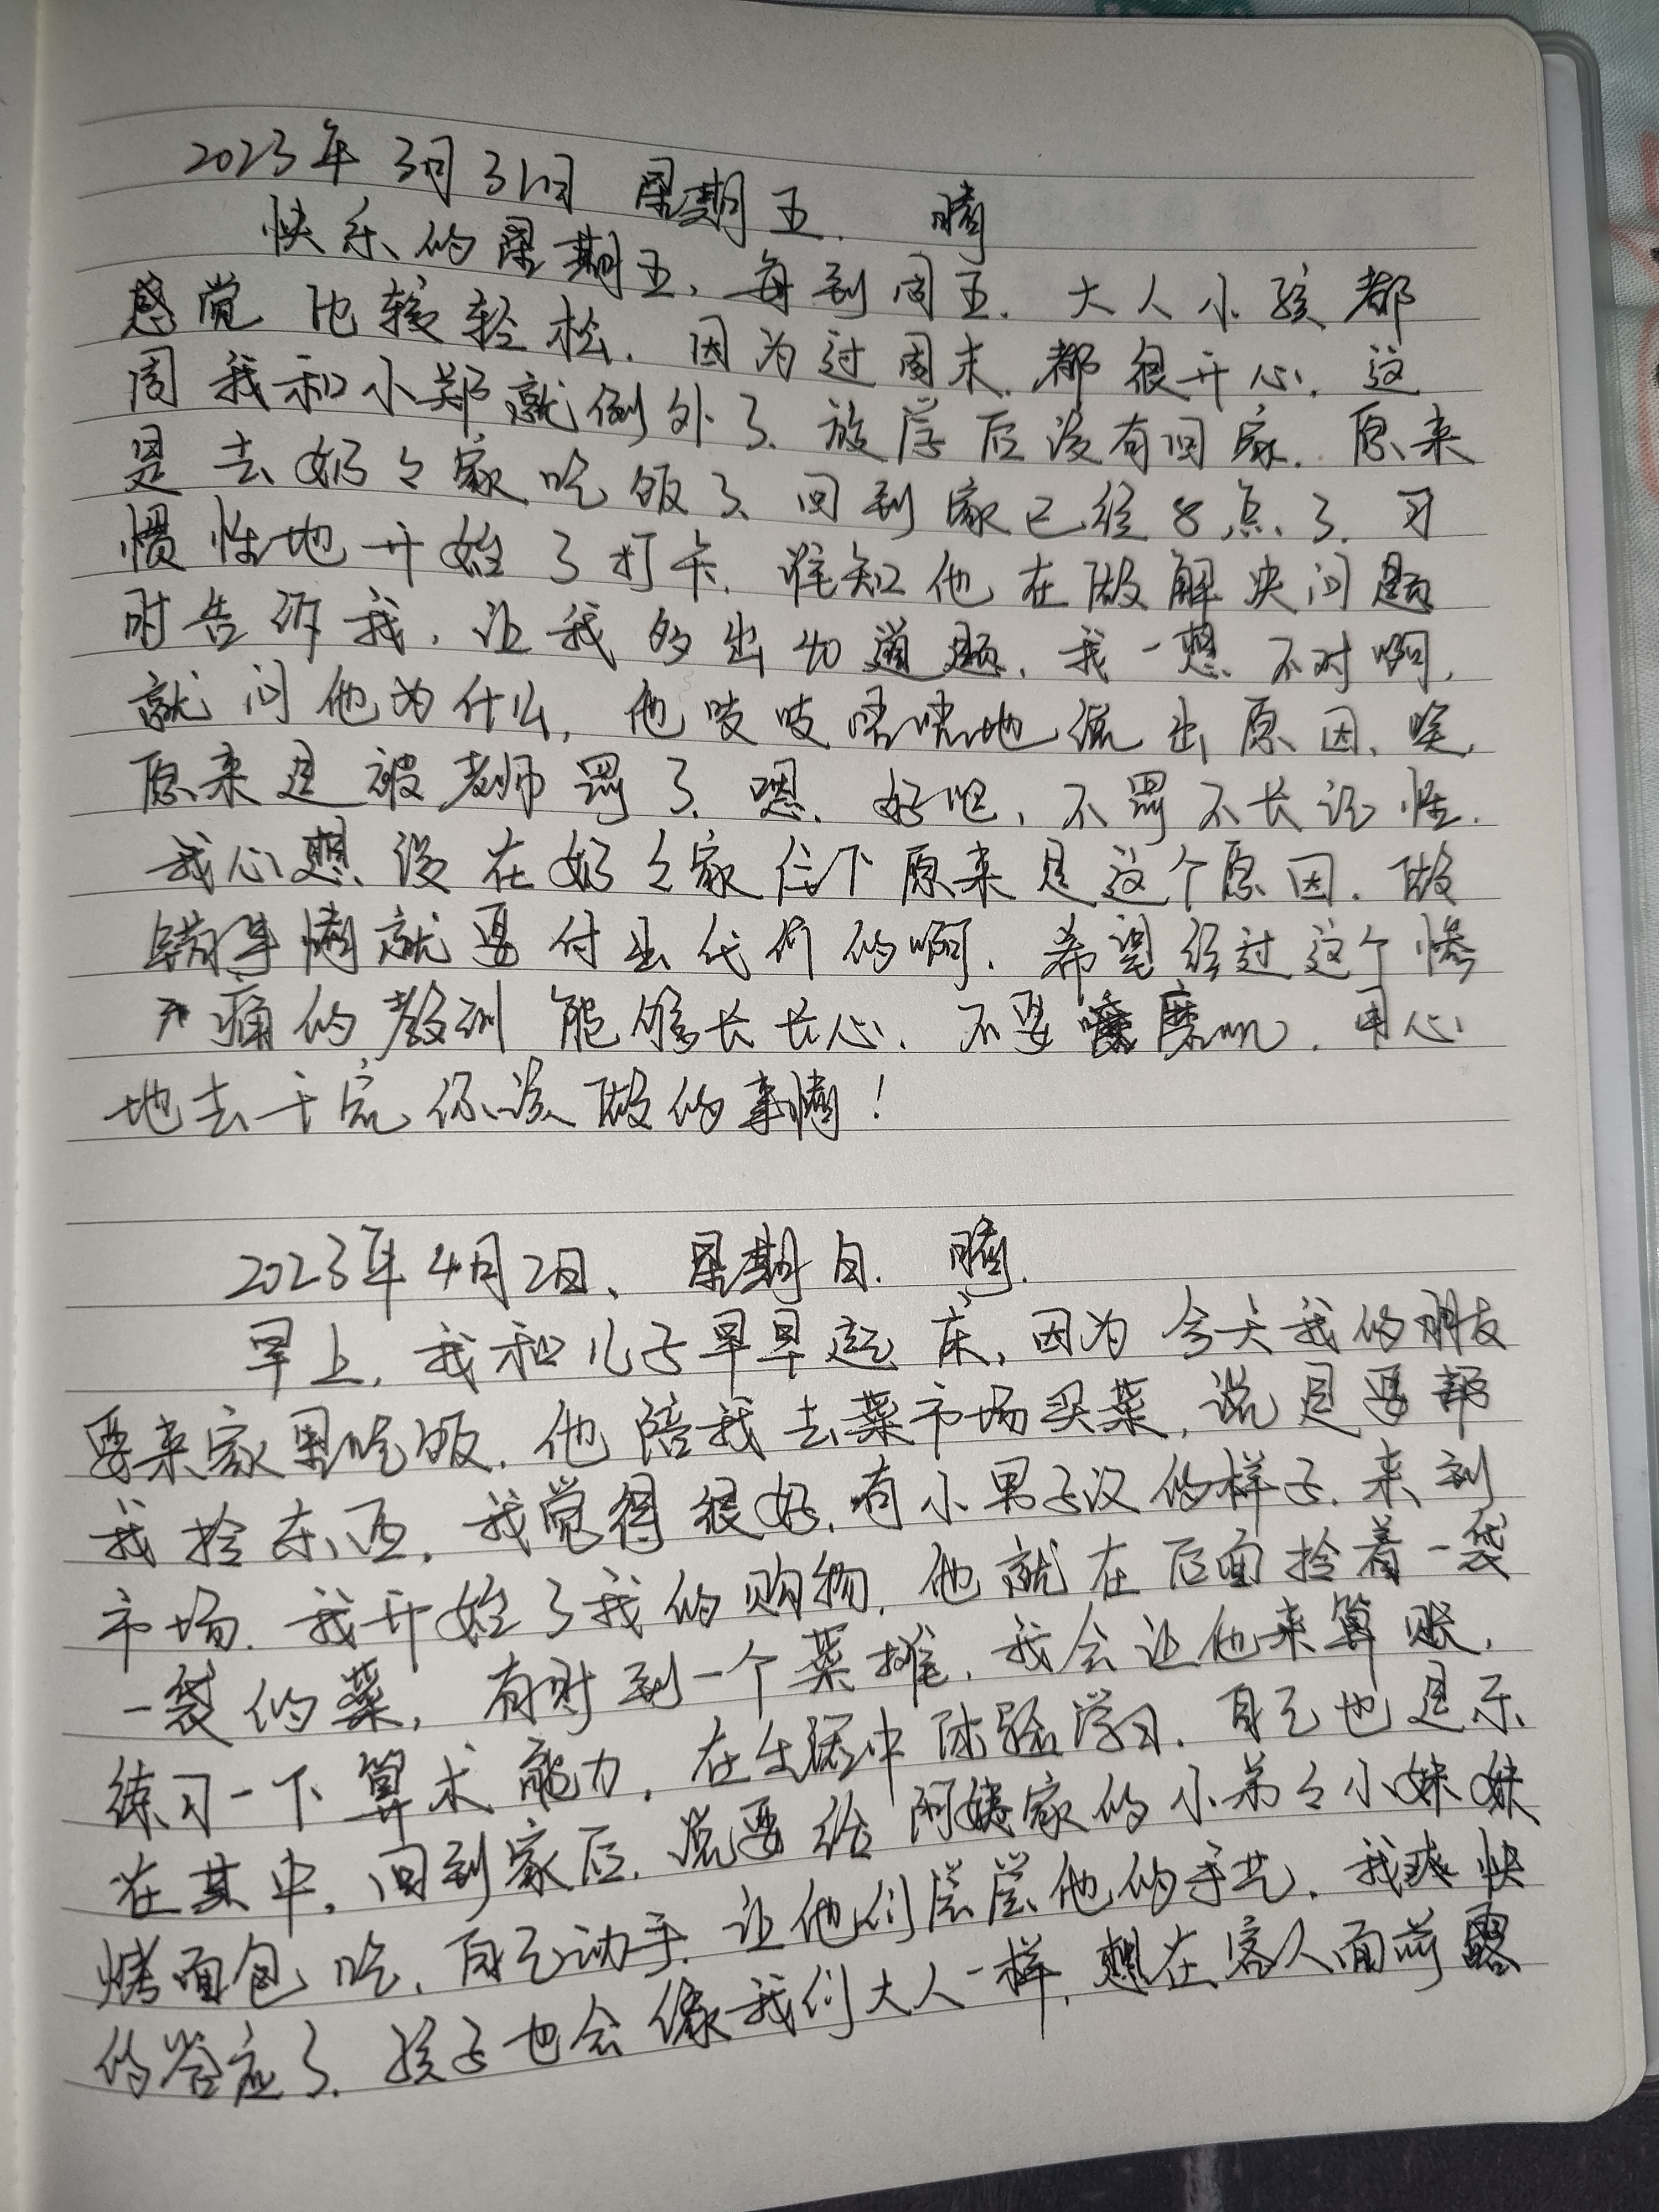 2023年3月31日 星期五. 晴
快乐的星期五,每到周五.大人小孩都
感觉比较轻松.因为过周末.都很开心.这
周我和小郑就例外了.放学后没有回家.原来
是去奶々家吃饭了.回到家已经8点了.习
惯性地开始了打卡.谁知他在做解决问题
时告诉我,让我多出40道题.我一想不对啊,
就问他为什么,他吱吱唔唔地说出原因、唉,
原来是被老师罚了.嗯.好吧,不罚不长记性.
我心想没在奶々家住下原来是这个原因.做
错事情就要付出代价的啊.希望经过这个惨
痛的教训能够长长心、不要磨叽.用心
地去干完你该做的事情!
2023年4月2日、星期日.晴.
早上,我和儿子早早起床,因为今天我的朋友
要来家里吃饭.他陪我去菜市场买菜,说是要帮
我拎东西,我觉得很好,有小男子汉的样子.来到
市场.我开始了我的购物.他就在后面拎着一袋
一袋的菜,有时到一个菜摊,我会让他来算账,
练习一下算术能力,在生活中体验学习.自己也是乐
在其中,回到家后.说要给阿姨家的小弟々小妹妹
烤面包吃,自己动手.让他们尝尝他的手艺.我爽快
的答应了.孩子也会像我们大人一样,想在客人面前露